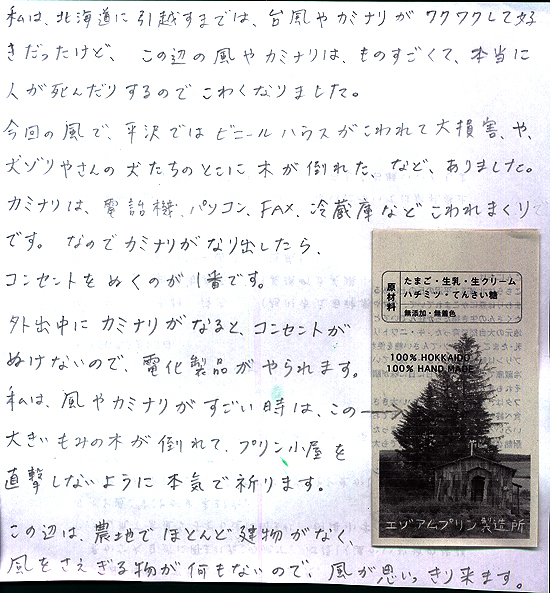 私は、北海道に引越すまでは、台風やカミナリがワクワクして好
きだったけど、この辺の風やカミナリは、ものすごくて、本当に
人が死んだりするのでこわくなりました。
今回の風で、平沢ではビニールハウスがこわれて大損害、や、
犬ゾリやさんの犬たちのとこに木が倒れた、など、ありました。
カミナリは、電話機、パソコン、FAX、冷蔵庫などこわれまくり
です。なのでカミナリがなり出したら、
コンセントをぬくのが1番です。
外出中にカミナリがなると、コンセントが
ぬけないので、電化製品がやられます。
私は、風やカミナリがすごい時は、この
大きいもみの木が倒れて、プリン小屋を
直撃しないように本気で祈ります。
この辺は、農地でほとんど建物がなく、
風をさえぎる物が何もないので、風が思いっきり来ます。
原材料
たまご・生乳・生クリーム
ハチミツ・てんさい糖
無添加・無着色
100% HOKKAIDO
100% HAND MADE
エゾアムプリン製造所